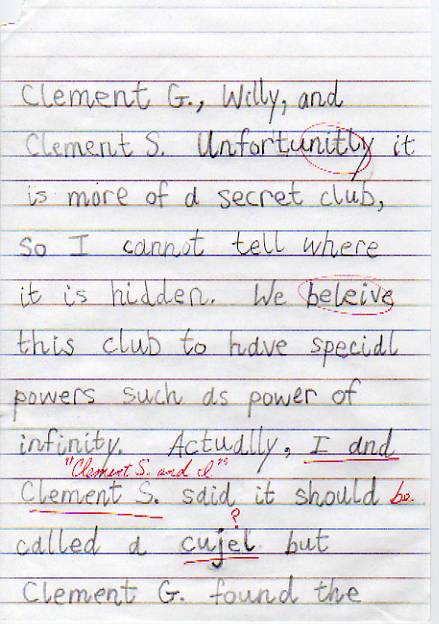 Clement G., Willy, and
Clement S. Unfortunitly it
is more of a secret club,
so I cannot tell where
it is hidden. We beleive
this club to have special
powers such as power of
infinity. Actually, I and
"Clement S. and I"
Clement S. said it should be
?
called a cujel but
Clement G. found the